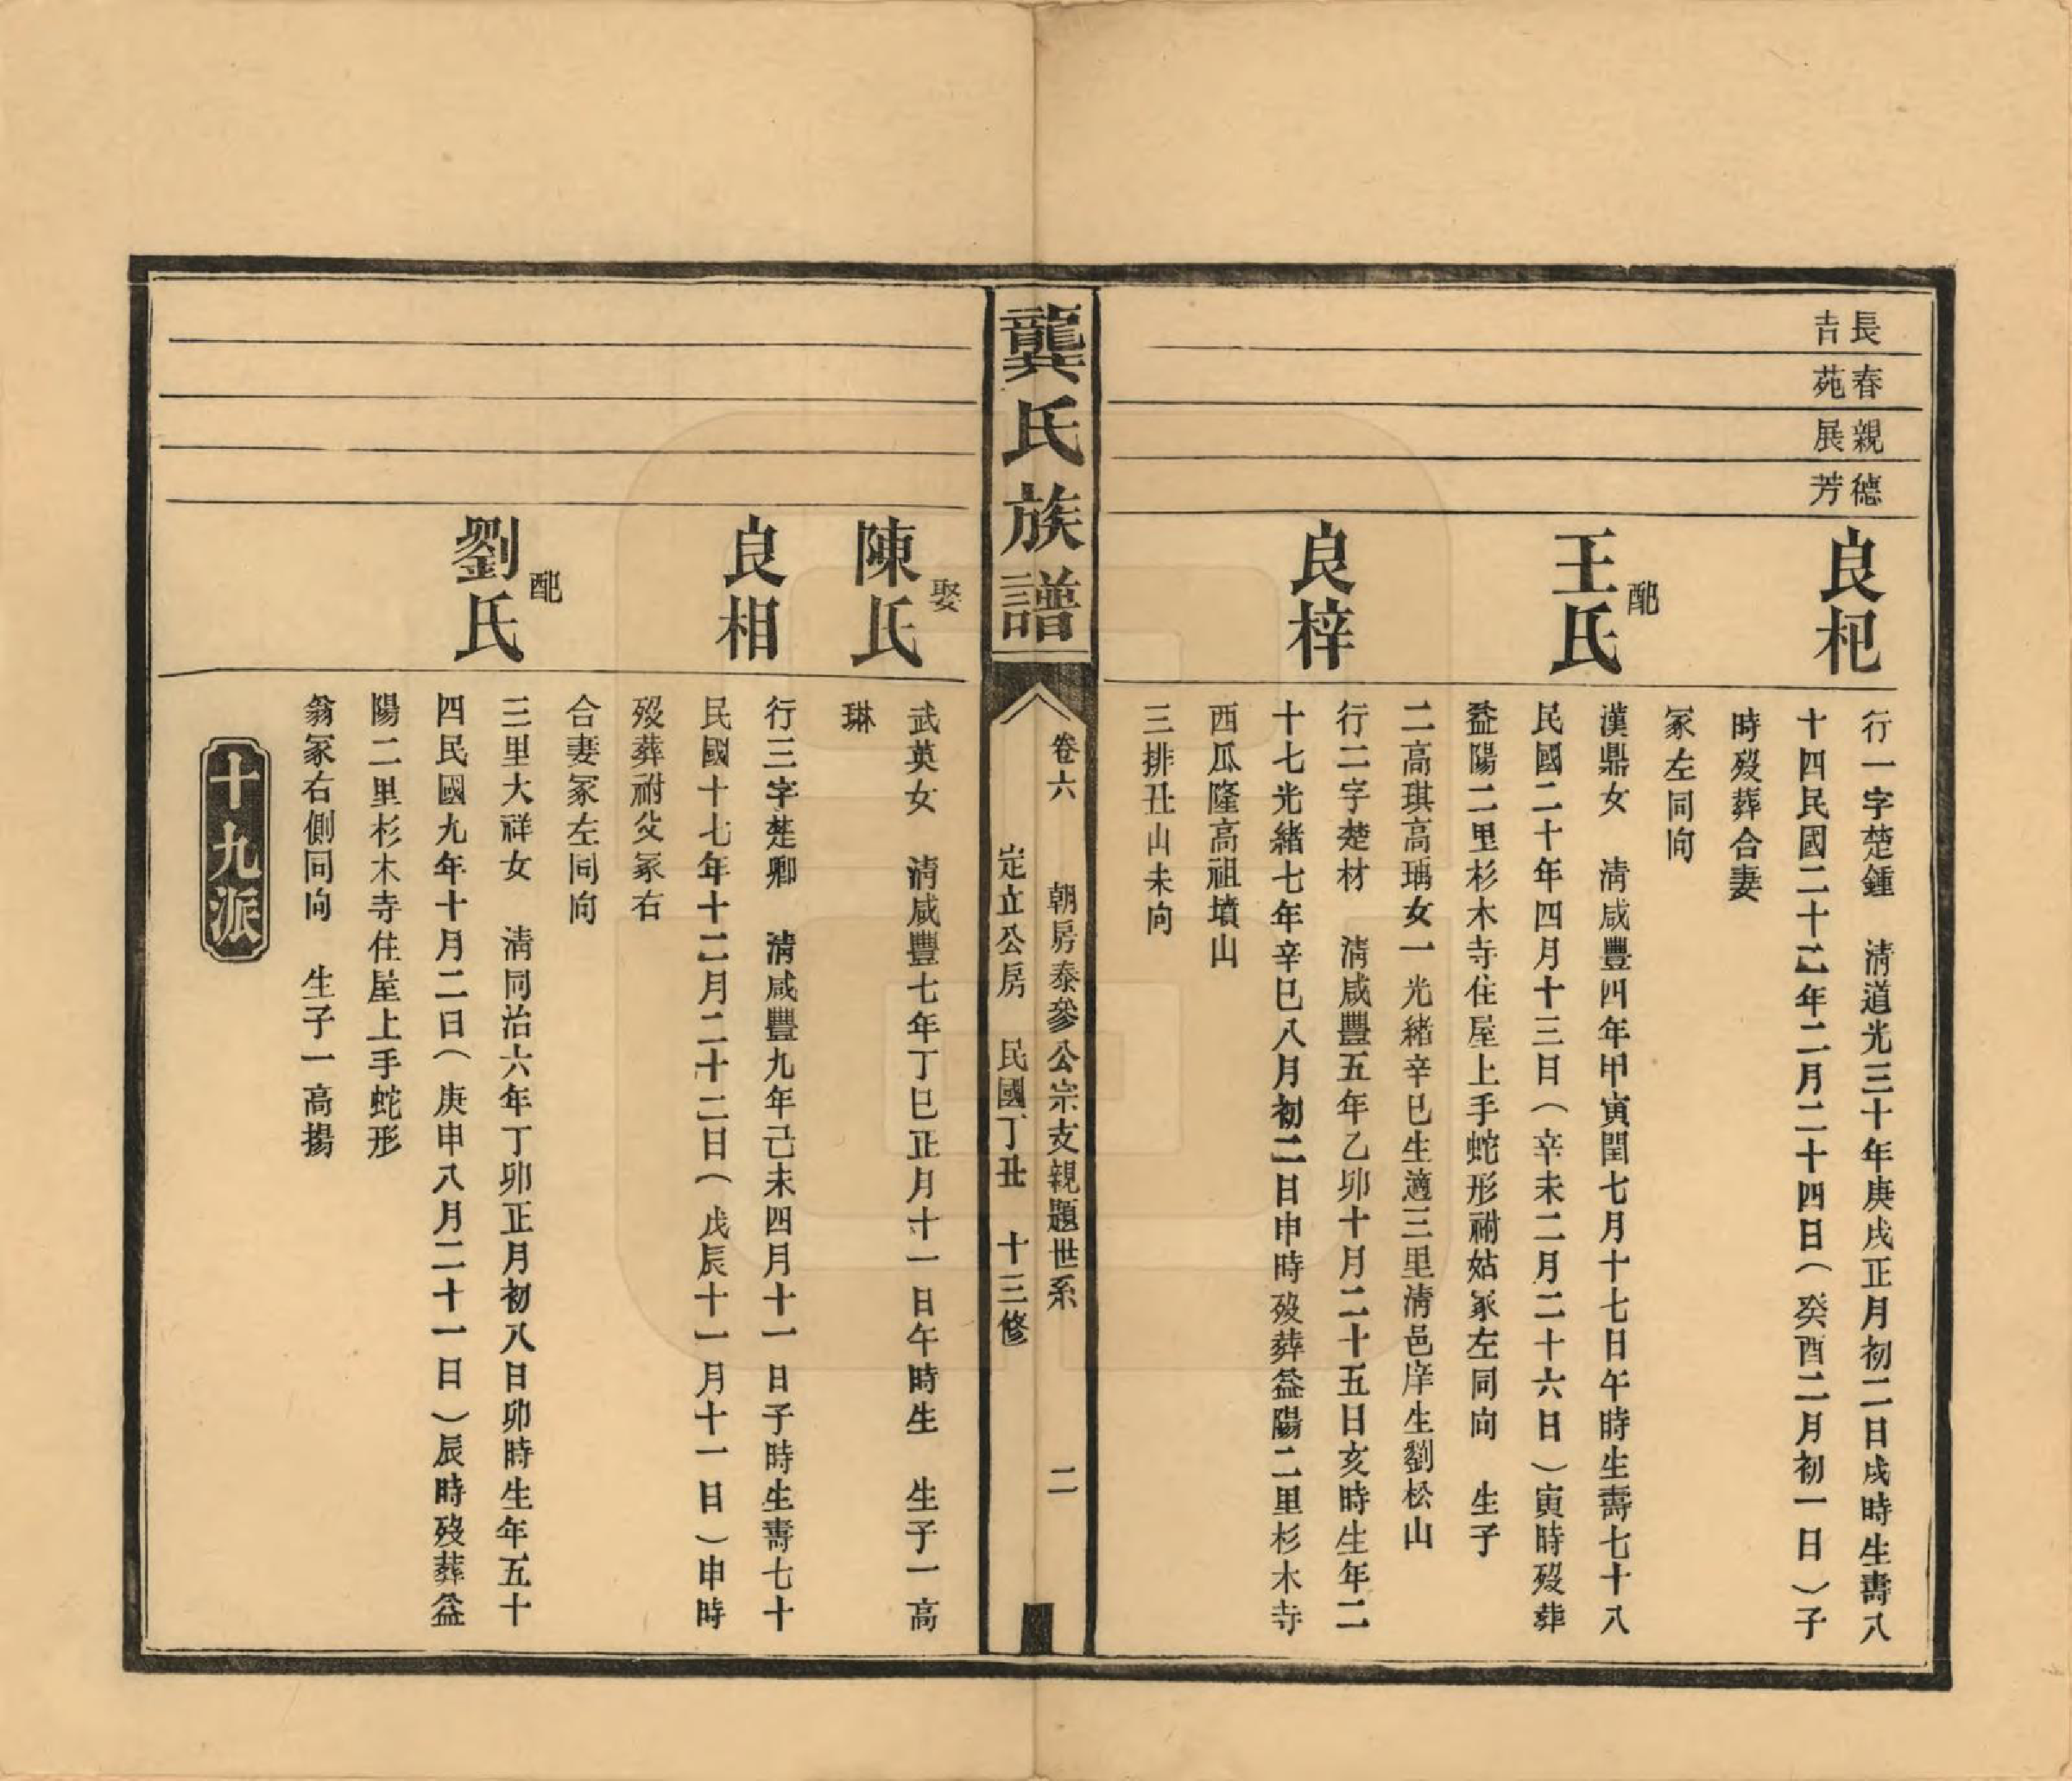 長春親德
吉苑展芳
良杞
行一字楚鍾　清道光三十年庚戌正月初二日戌時生壽八
十四民國二十二年二月二十四日（癸酉二月初一日）子
時歿葬合妻
冢左同向
配
王氏
漢鼎女　清咸豐四年甲寅閏七月十七日午時生壽七十八
民國二十年四月十三日（辛未二月二十六日）寅時歿葬
益陽二里杉木寺住屋上手蛇形祔姑冢左同向　生子
二高琪高瑀女一光緒辛巳生適三里清邑庠生劉松山
良梓
行二字楚材　清咸豐五年乙卯十月二十五日亥時生年二
十七光緒七年辛巳八月初二日申時歿葬益陽二里杉木寺
西瓜隆高祖墳山
三排丑山未向
龔氏族譜
卷六　朝房泰參公宗支親題世系　二
定立公房　民國丁丑　十三修
娶
陳氏
武英女　清咸豐七年丁巳正月十一日午時生　生子一高
琳
良相
行三字楚卿　清咸豐九年己未四月十一日子時生壽七十
民國十七年十二月二十二日（戊辰十一月十一日）申時
歿葬祔父冢右
合妻冢左同向
配
劉氏
三里大祥女　清同治六年丁卯正月初八日卯時生年五十
四民國九年十月二日（庚申八月二十一日）辰時歿葬益
陽二里杉木寺住屋上手蛇形
翁冢右側同向　生子一高揚
十九派